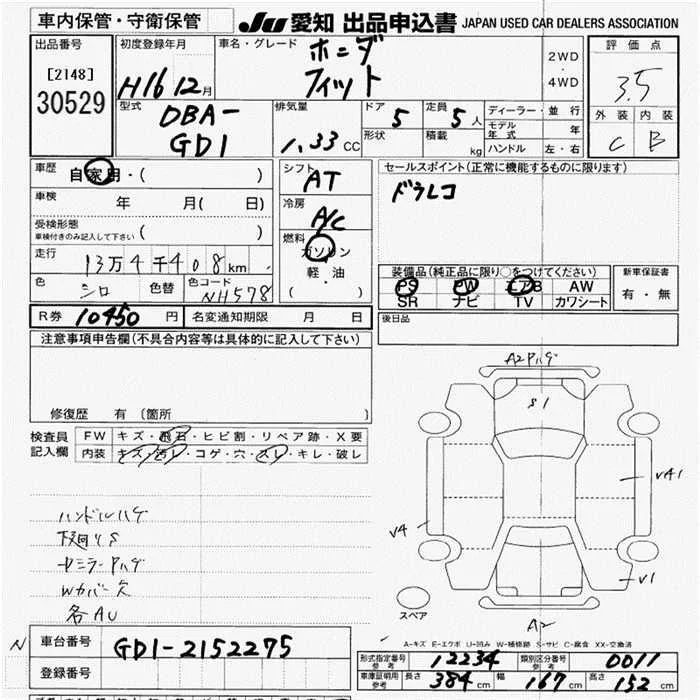 車内保管・守衛保管
JU 愛知 出品申込書 JAPAN USED CAR DEALERS ASSOCIATION
出品番号
[2148]
30529
初度登録年月
H16 12月
車名・グレード
ホンダ
フィット
2WD
・
4WD
評価点
3.5
外装 内装
C B
型式
DBA-
GD1
排気量
1.33 CC
ドア 5
形状
定員 5 人
積載 kg
ディーラー・並行
モデル年式 年
ハンドル 左・右
車歴
自家用・( )
車検
年 月( 日)
受検形態
車検付きのみ記入して下さい ( )
走行
13万4千408km
色
シロ
色替
色コード
NH578
シフト
AT
冷房
A/C
燃料
ガソリン
軽・油
( )
セールスポイント(正常に機能するものに限ります)
ドラレコ
装備品(純正品に限り○をつけてください)
PS PW エアB AW
SR ナビ TV カワシート
新車保証書
有・無
R券 10450 円
名変通知期限 月 日
後日品
注意事項申告欄(不具合内容等は具体的に記入して下さい)
修復歴 有 〔箇所 〕
検査員
記入欄
FW キズ・飛石・ヒビ割・リペア跡・X要
内装 キズ・汚レ・コゲ・穴・スレ・キレ・破レ
ハンドルハゲ
下廻りS
ドミラーAハゲ
Wカバー欠
各AU
A2Pハゲ
S1
V41
V4
V1
スペア
A2
A-キズ E-エクボ U-凹み W-補修跡 S-サビ C-腐食 XX-交換済
N
車台番号
GD1-2152275
登録番号
形式指定番号 参考 12234
類別区分番号 参考 0011
車庫証明用 参考
長さ 384 cm
幅 167 cm
高さ 152 cm